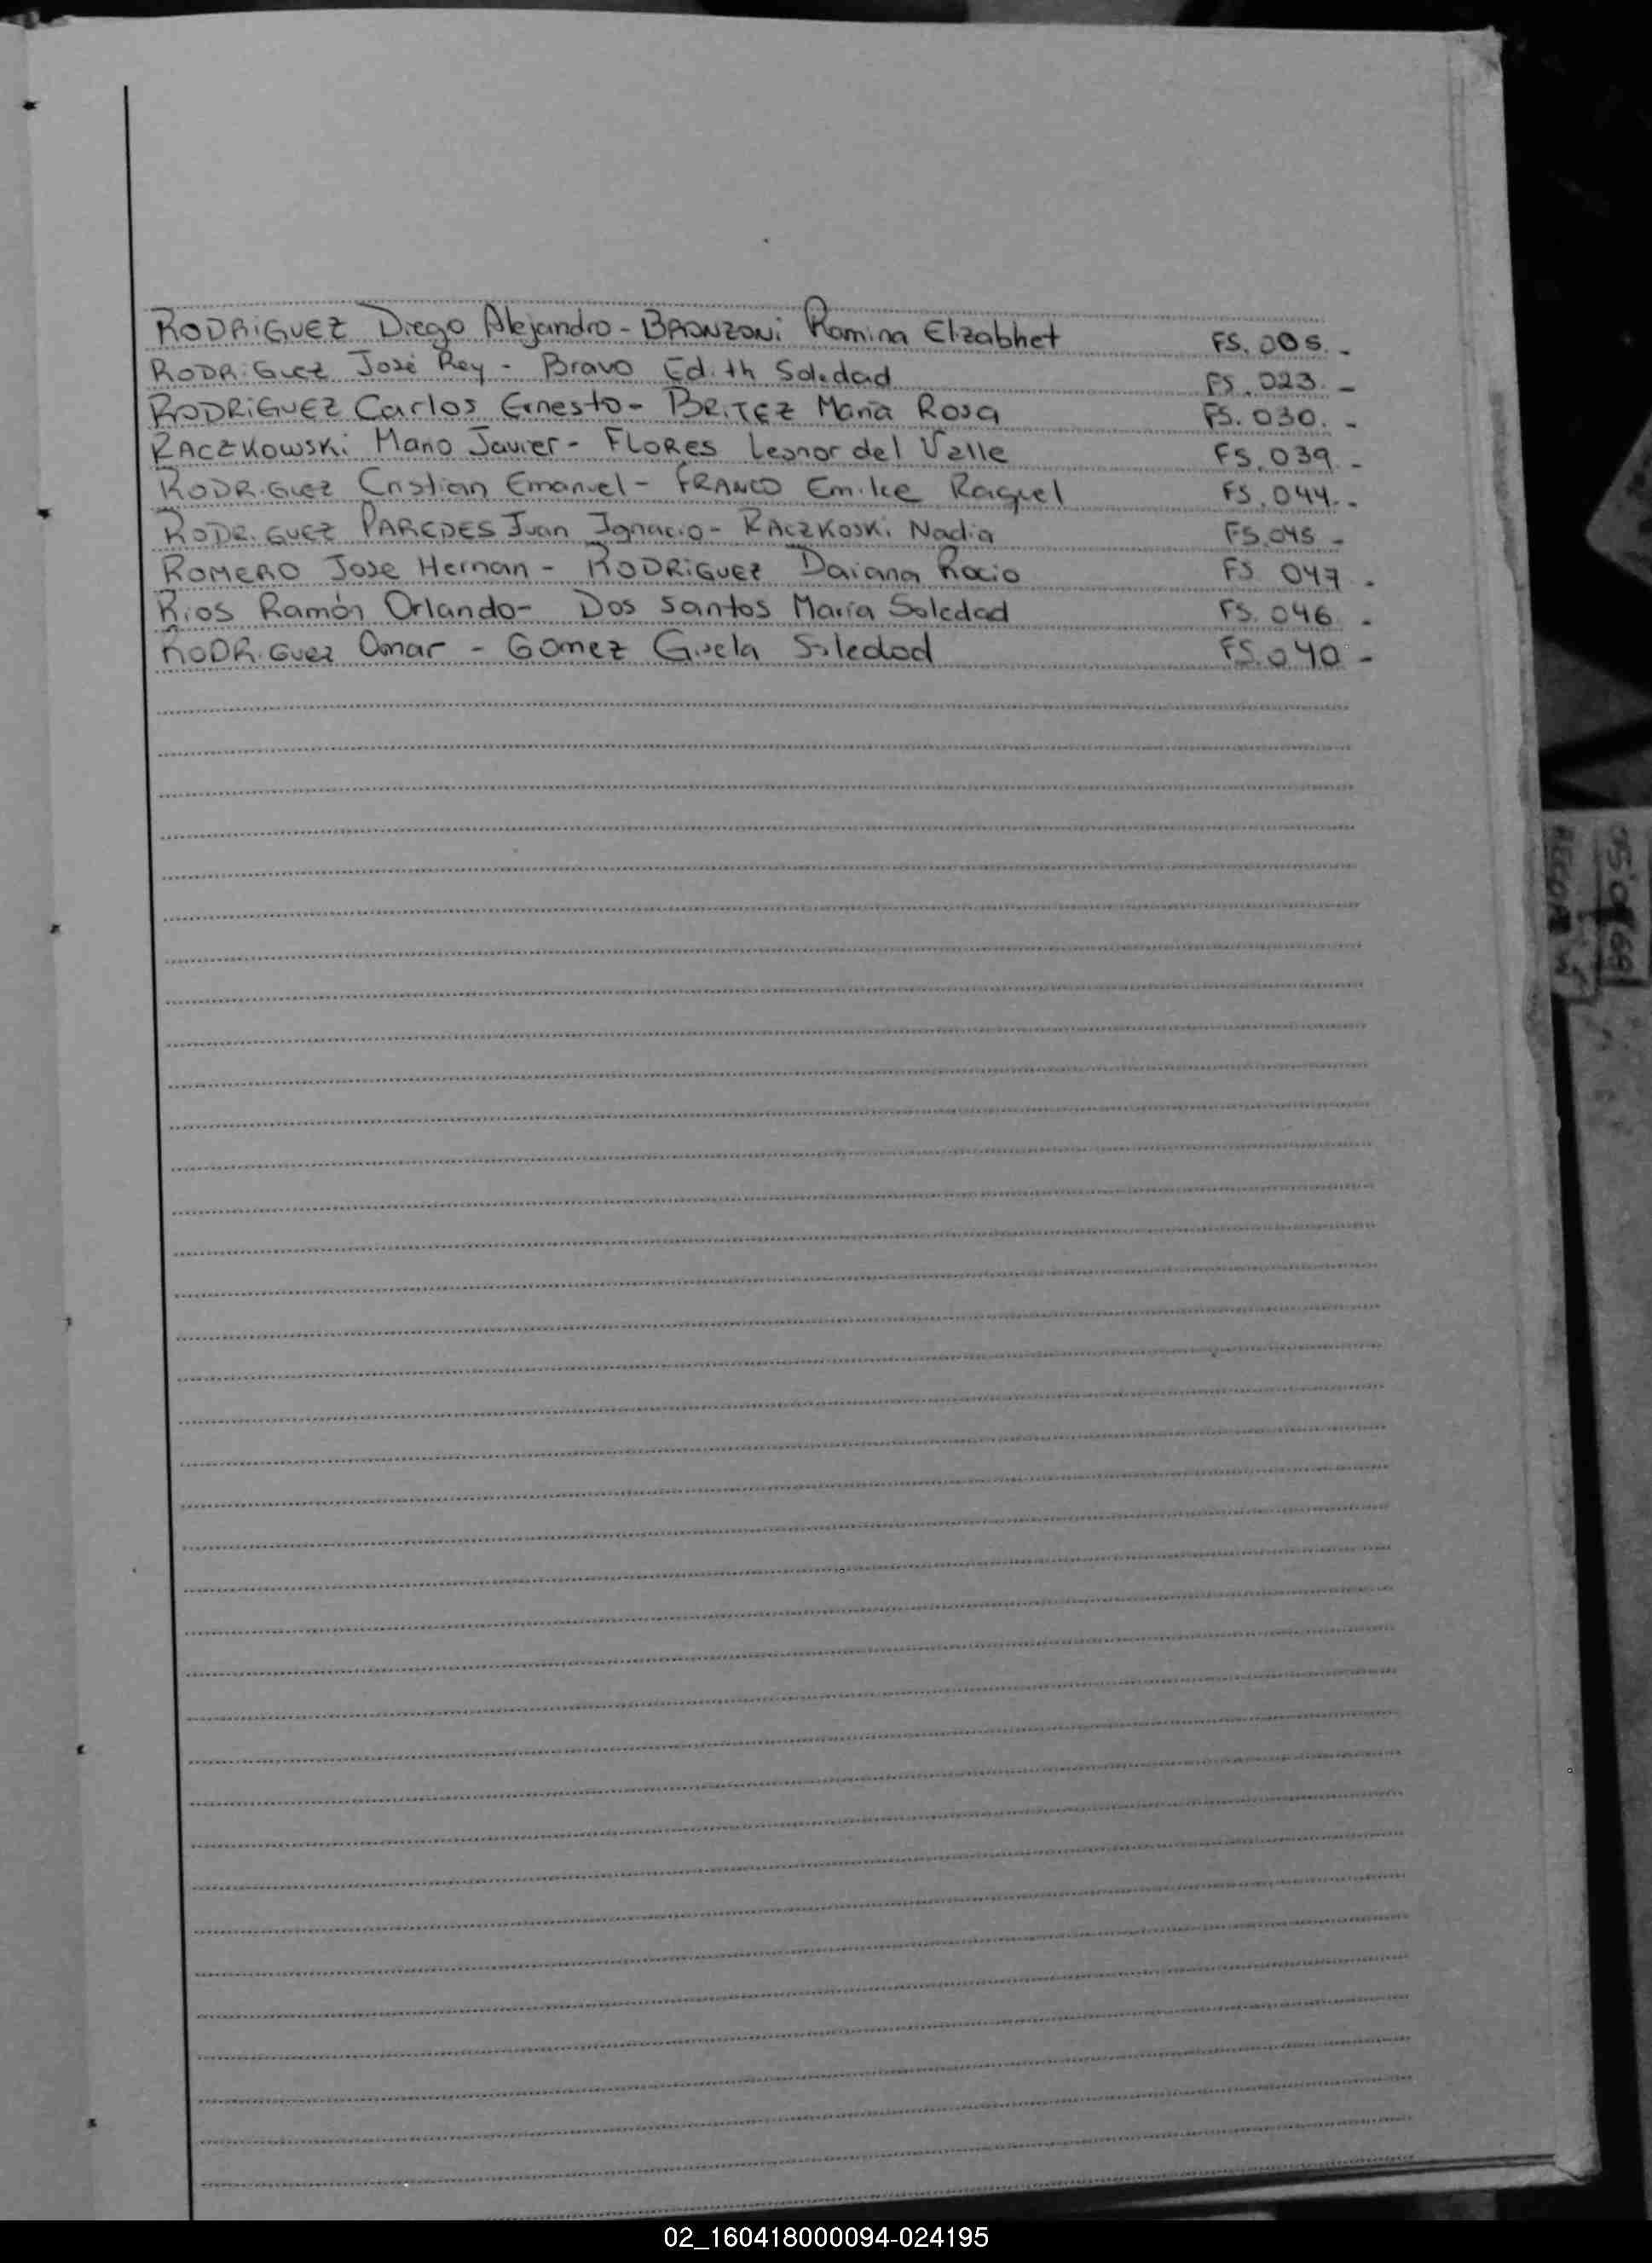 RODRIGUEZ Diego Alejandro - BRONZONI Romina Elizabhet FS. 005. -
RODRIGUEZ José Rey - Bravo Edith Soledad FS. 023. -
RODRIGUEZ Carlos Ernesto - BRITEZ Maria Rosa FS. 030. -
RACZKOWSKI Mario Javier - FLORES Leonor del Valle FS. 039 -
RODRIGUEZ Cristian Emanuel - FRANCO Emilce Raquel FS. 044. -
RODRIGUEZ PAREDES Juan Ignacio - RACZKOSKI Nadia FS. 045 -
ROMERO Jose Hernan - RODRIGUEZ Daiana Rocio FS 047 -
Rios Ramón Orlando - Dos santos María Soledad FS. 046 -
RODRIGUEZ Omar - GOMEZ Gisela Soledad FS. 040 -
02_160418000094-024195